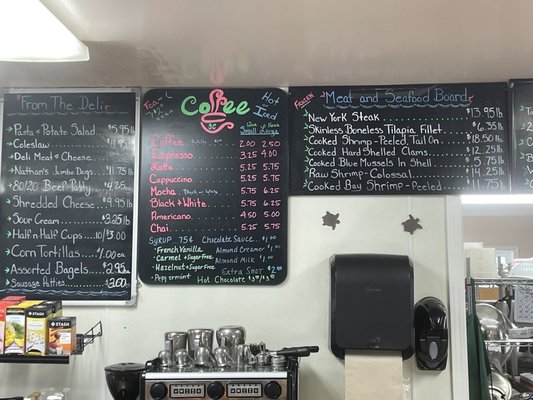 From The Deli
Pasta + Potato Salad $5.95 lb
Coleslaw
Deli Meat & Cheese
Nathan's Jumbo Dogs
80/20 Beef Patty $4.25
Shredded Cheese $4.95 lb
Sour Cream $3.25
Half n Half Cups
Corn Tortillas
Assorted Bagels $2.95
Sausage Patties $3.00
Coffee
Hot or Iced
Small Large
Coffee 2.00 2.50
Espresso 3.25 4.00
Latte 5.25 5.75
Cappuccino 5.25 5.75
Mocha 5.75 6.25
Black + White 5.75 6.25
Americano 4.50 5.00
Chai 5.75 6.25
Syrup 75¢ Chocolate Sauce $1.00
French Vanilla Almond Creamer
Carmel + Sugar Free Almond Milk
Hazelnut + Sugar Free Extra Shot
Peppermint Hot Chocolate
Frozen Meat and Seafood Board
New York Steak $13.95 lb
Skinless Boneless Tilapia Fillet $6.35
Cooked Shrimp-Peeled, Tail On $18.50 lb
Cooked Hard Shelled Clams $12.25
Cooked Blue Mussels In Shell $5.75 lb
Raw Shrimp-Colossal $14.25 lb
Cooked Bay Shrimp-Peeled $11.75
STASH
STASH